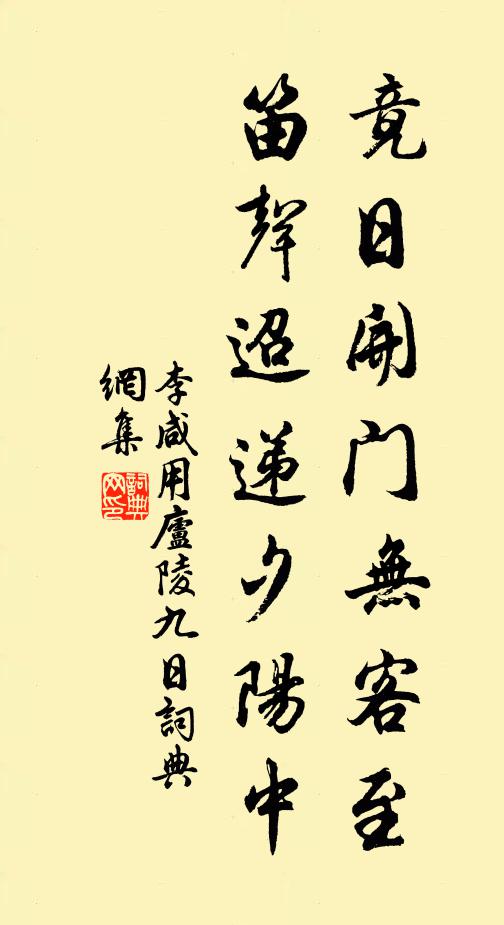 竟日開門無客至
笛聲迢递夕陽中
李咸用廬陵九日詞典
網集
詞典
网印